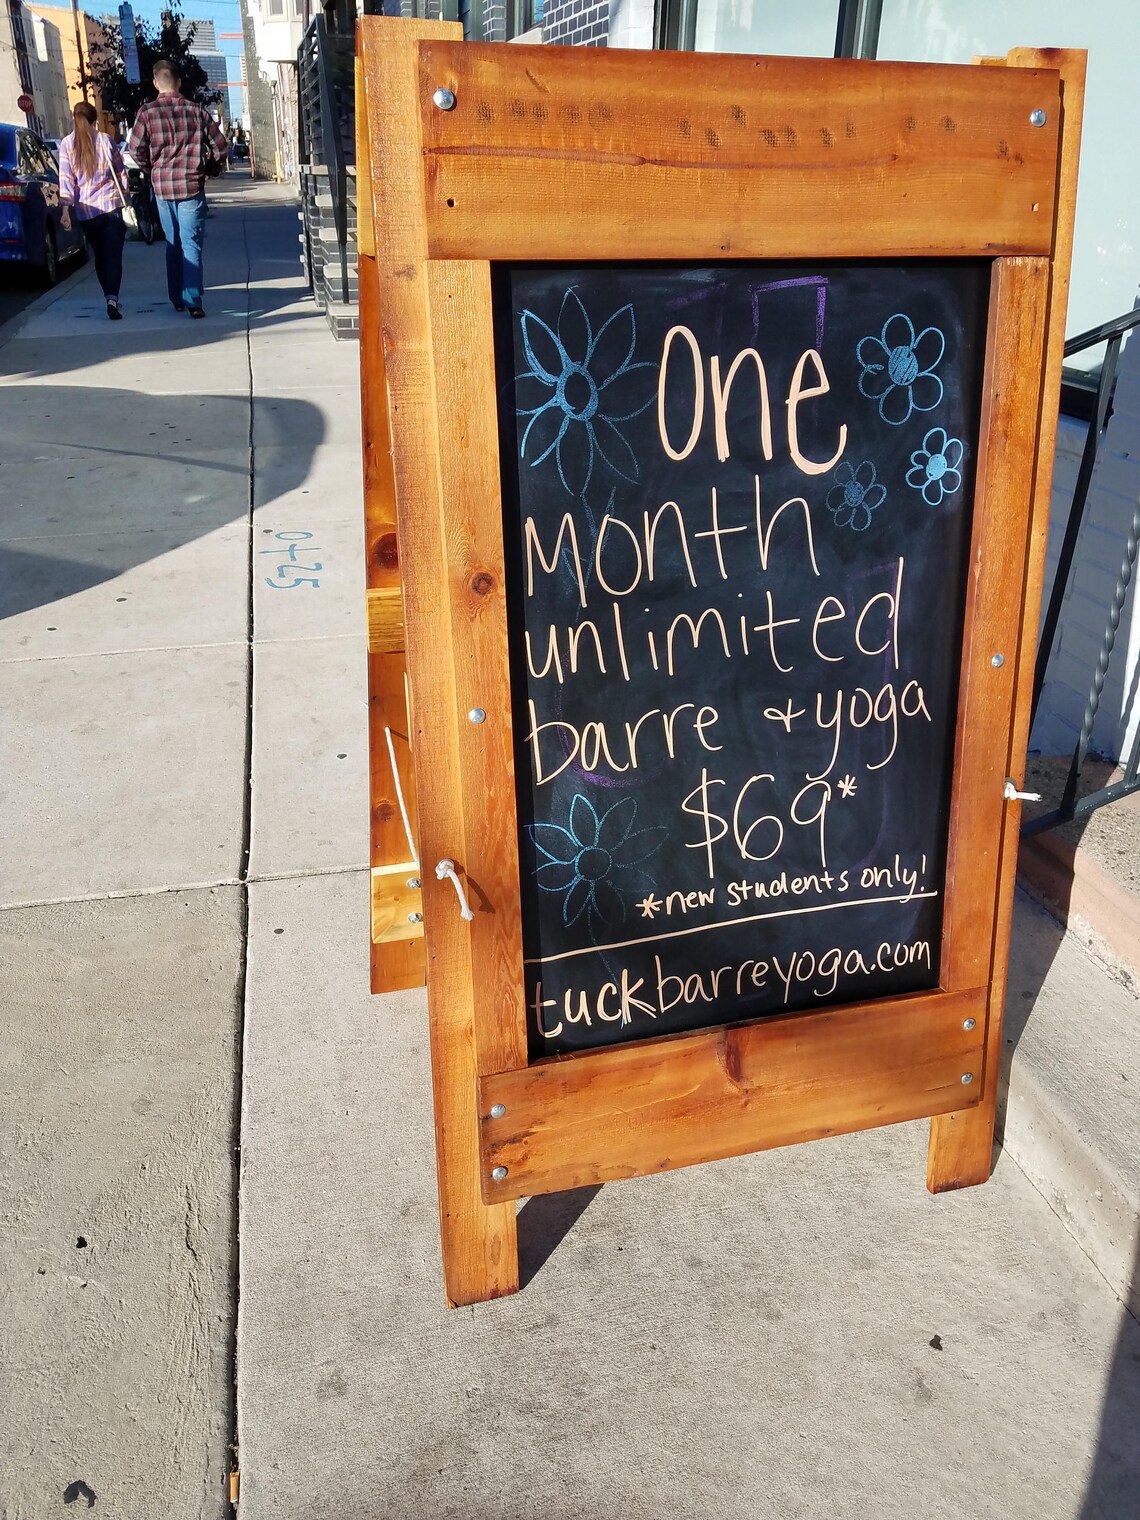 One
month
unlimited
barre + yoga
$69*
*new students only!
tuckbarreyoga.com
0+25